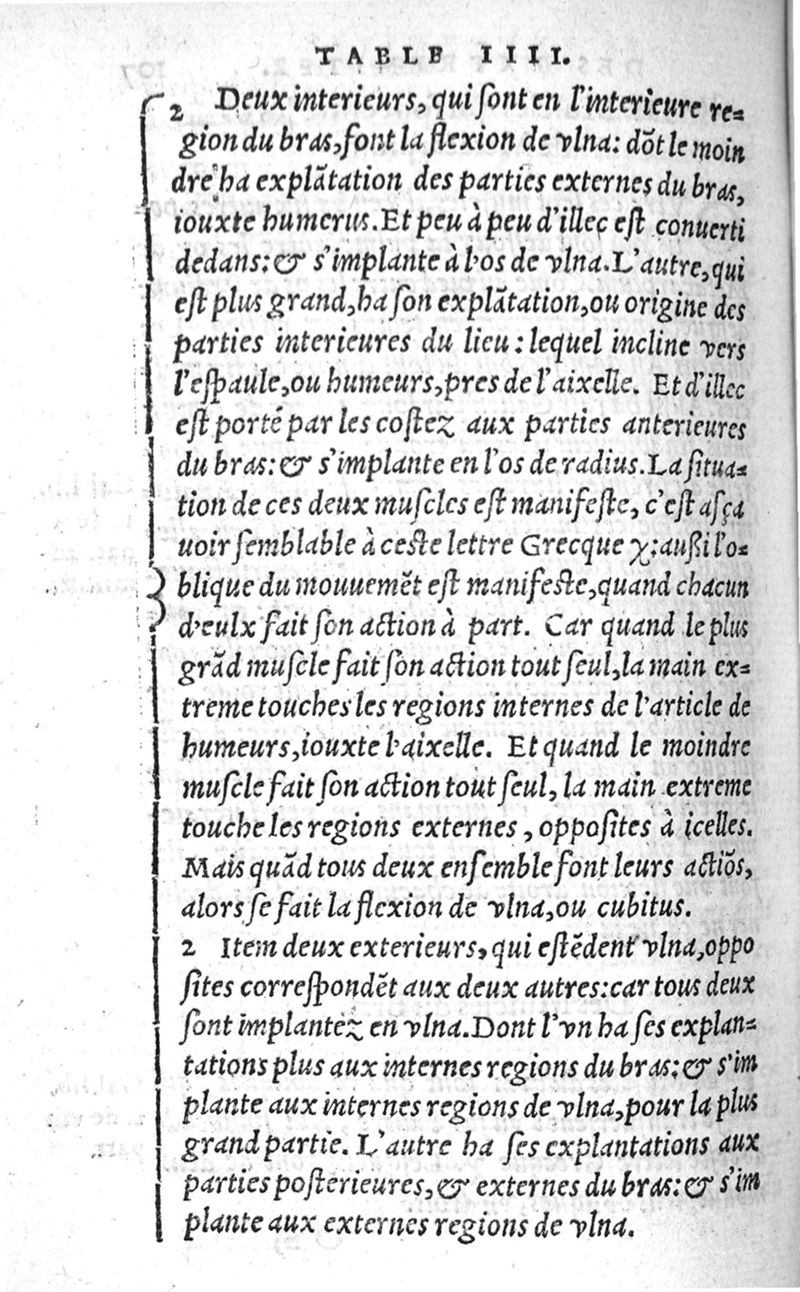 TABLE IIII.
2 Deux interieurs, qui ſont en l'interieure re=
gion du bras, font la flexion de vlna: dõt le moin
dre ha explãtation des parties externes du bras,
iouxte humerus. Et peu à peu d'illec eſt conuerti
dedans: & s'implante à l'os de vlna. L'autre, qui
eſt plus grand, ha ſon explãtation, ou origine des
parties interieures du lieu: lequel incline vers
l'eſpaule, ou humeurs, pres de l'aixelle. Et d'illec
eſt porté par les coſtez aux parties anterieures
du bras: & s'implante en l'os de radius. La ſitua=
tion de ces deux muſcles eſt manifeſte, c'eſt aſça
uoir ſemblable à ceſte lettre Grecque χ: auſſi l'o=
blique du mouuemẽt eſt manifeſte, quand chacun
d'eulx fait ſon action à part. Car quand le plus
grãd muſcle fait ſon action tout ſeul, la main ex=
treme touches les regions internes de l'article de
humeurs, iouxte l'aixelle. Et quand le moindre
muſcle fait ſon action tout ſeul, la main extreme
touche les regions externes, oppoſites à icelles.
Mais quãd tous deux enſemble font leurs actiõs,
alors ſe fait la flexion de vlna, ou cubitus.
2 Item deux exterieurs, qui eſtẽdent vlna, oppo
ſites correſpondẽt aux deux autres: car tous deux
ſont implantez en vlna. Dont l'vn ha ſes explan=
tations plus aux internes regions du bras: & s'im
plante aux internes regions de vlna, pour la plus
grand partie. L'autre ha ſes explantations aux
parties poſterieures, & externes du bras: & s'im
plante aux externes regions de vlna.